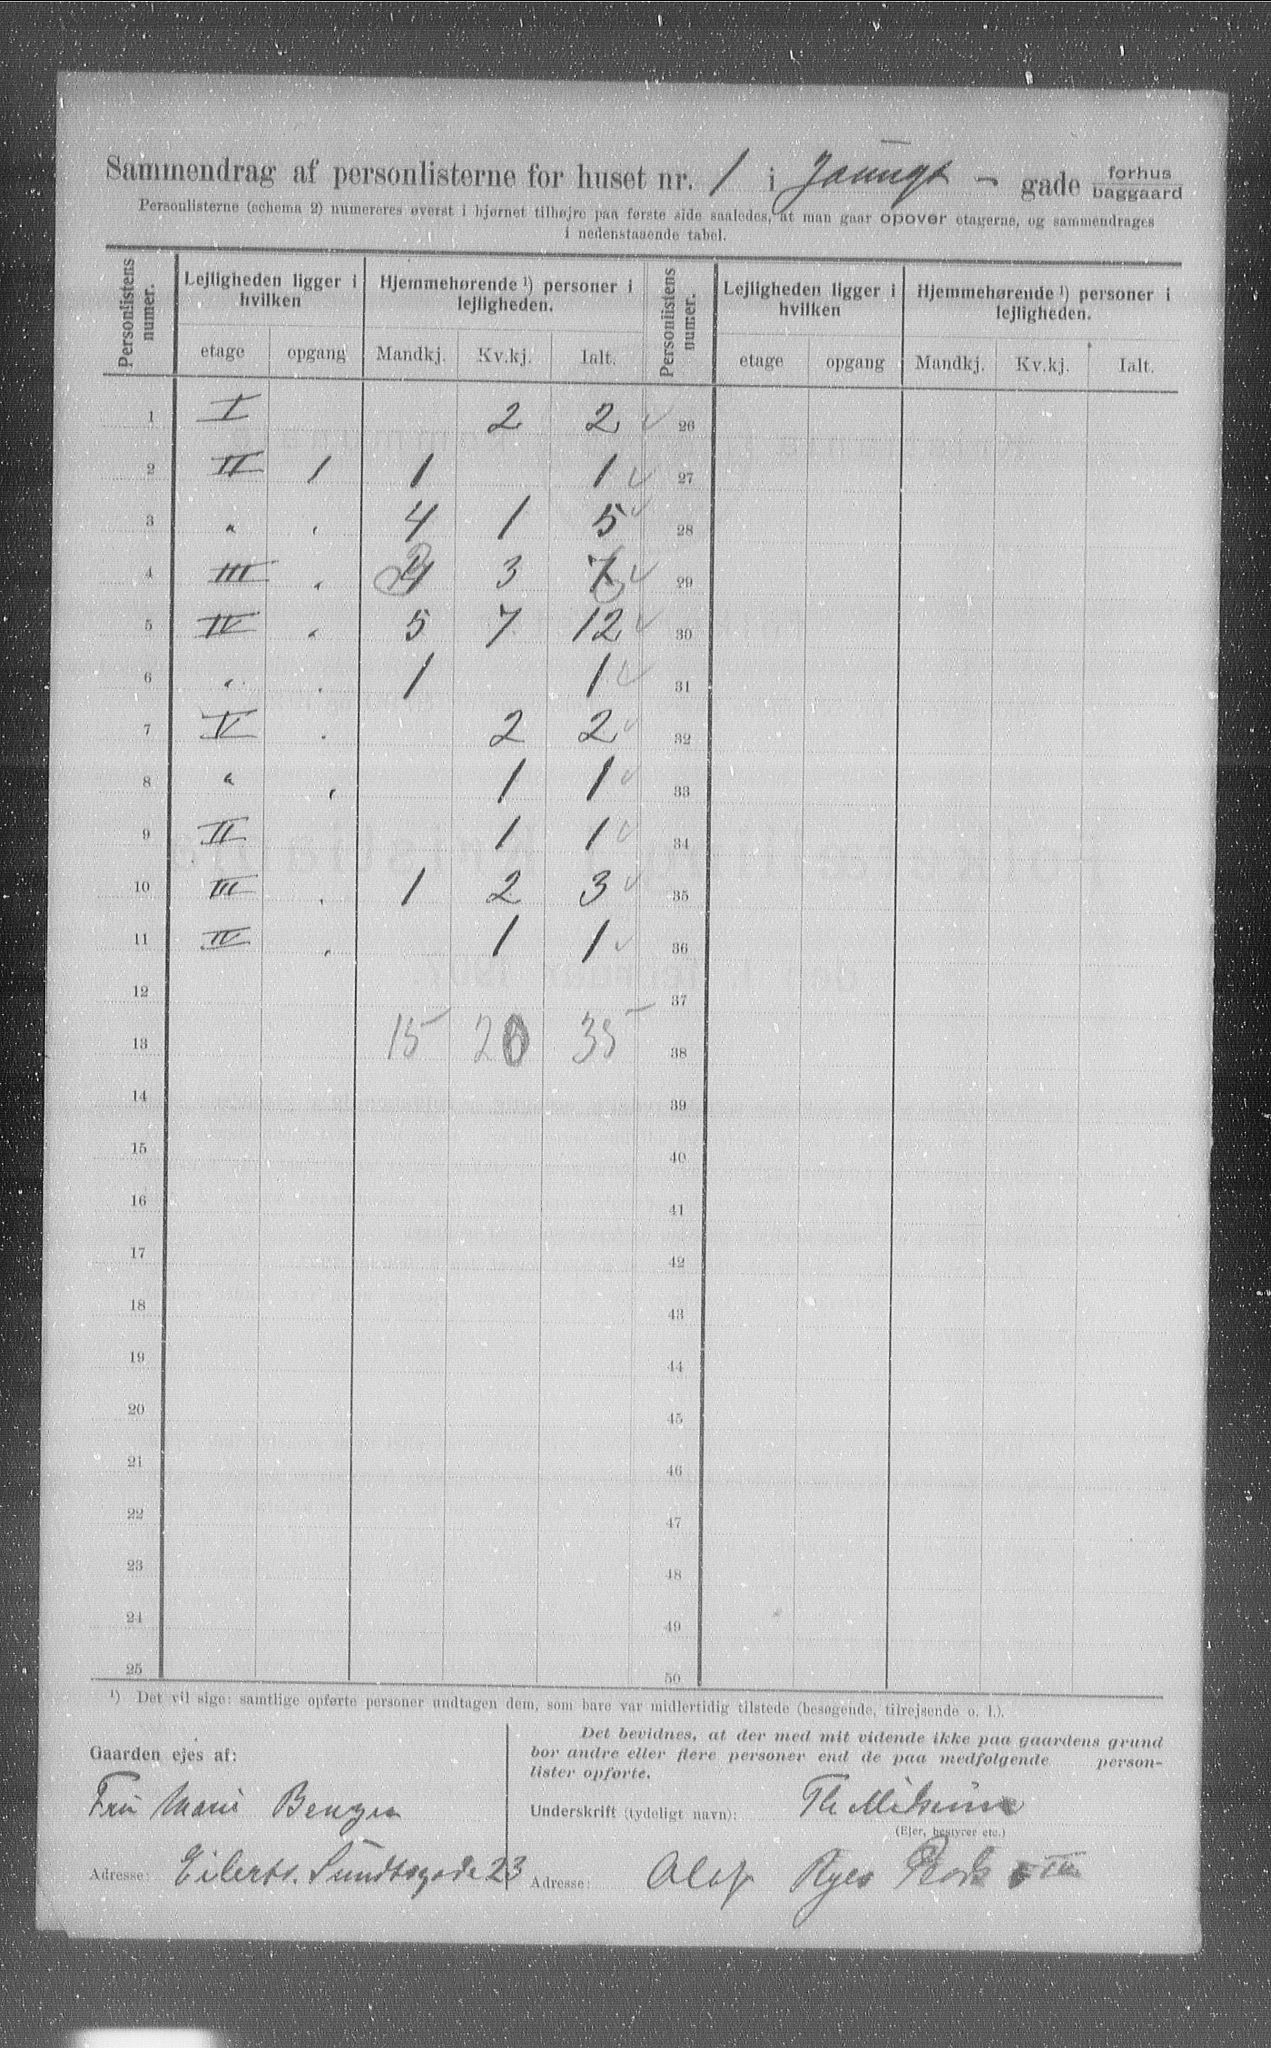 Sammendrag af personlisterne for huset nr. 1 i - gade forhus baggaard
Personlisterne (schema 2) numereres øverst i hjørnet tilhøjre paa første side saaledes, at man gaar opover etagerne, og sammendrages
i nedenstaaende tabel.
Personlistens numer. Lejligheden ligger i hvilken Hjemmehørende ¹) personer i lejligheden. Personlistens numer. Lejligheden ligger i hvilken Hjemmehørende ¹) personer i lejligheden.
etage opgang Mandkj. Kv.kj. Ialt. etage opgang Mandkj. Kv.kj. Ialt.
1 I 2 2 ✓ 26
2 II 1 1 1 ✓ 27
3 " . 4 1 5 ✓ 28
4 III . 3 ✓ 29
5 IV . 5 7 12 ✓ 30
6 " . 1 1 ✓ 31
7 V . 2 2 ✓ 32
8 " . 1 1 ✓ 33
9 II 1 1 ✓ 34
10 III . 1 2 3 ✓ 35
11 IV . 1 1 ✓ 36
12 37
13 15 20 35 38
14 39
15 40
16 41
17 42
18 43
19 44
20 45
21 46
22 47
23 48
24 49
25 50
¹) Det vil sige: samtlige opførte personer undtagen dem, som bare var midlertidig tilstede (besøgende, tilrejsende o. l.).
Gaarden ejes af:
Fru Marie
Adresse: Eilerts. Sundtsgade 23
Det bevidnes, at der med mit vidende ikke paa gaardens grund
bor andre eller flere personer end de paa medfølgende person-
lister opførte.
Underskrift (tydeligt navn): Th
(Ejer, bestyrer etc.)
Adresse: Olaf Ryes